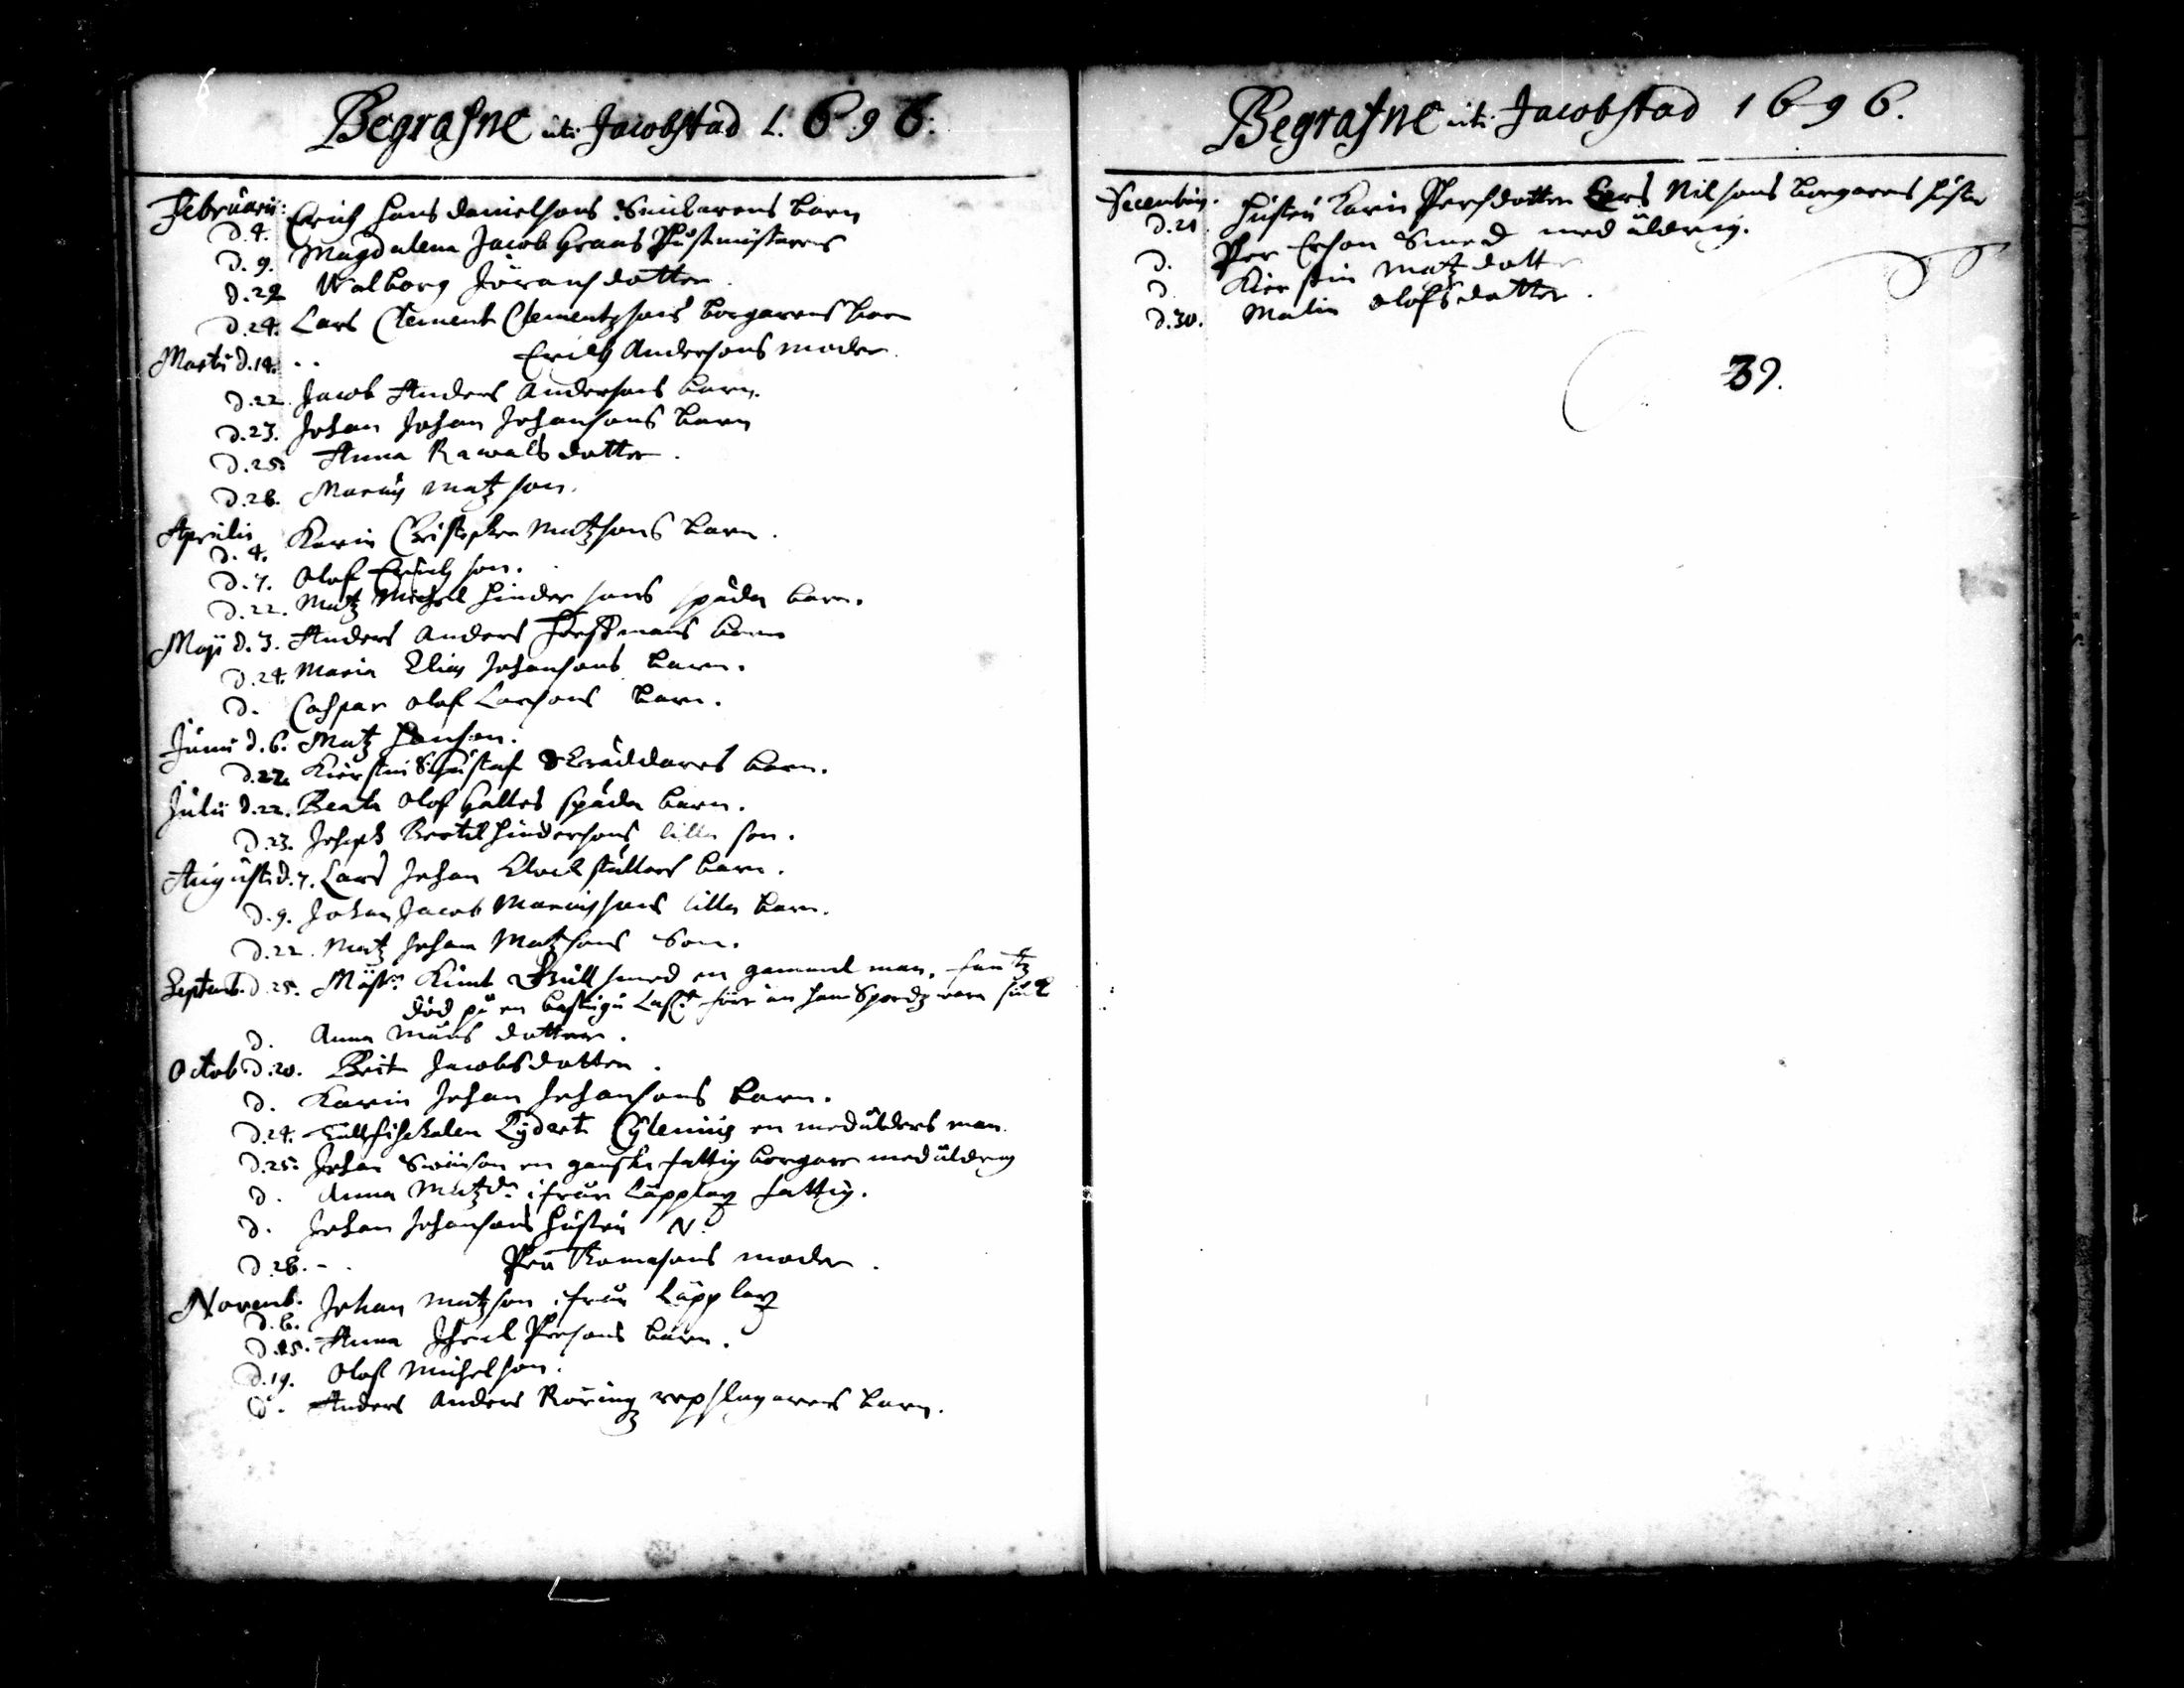 Begrafne uti Jacobstad 1.6.9 6.
Februarii: Erich Hans Danielsons Snickarens barn
d. 4.
d. 9. Magdalena Jacob Graas Påstmästarens
d. 22 Walborg Jöransdotter.
d. 24. Lars Clement Clementzsons borgarens barn
Martii d. 14. .. Erich Andersons moder.
d. 22. Jacob Anders Andersons barn.
d. 23. Johan Johan Johansons barn
d. 25. Anna Rawalsdotter.
d. 28. Marcus Matzson.
Aprilis Karin Christopher Matzsons barn.
d. 4.
d. 7. Olof Erichson.
d. 22. Matz Michel Hindersons späda barn.
Maji d. 3. Anders Anders Forssmans barn
d. 24. Maria Elias Johansons barn.
d. Caspar Olof Larsons barn.
Junii d. 6. Matz Hanson.
d. 22. Kierstin Gustaf Skräddares barn.
Julii d. 22. Beata Olof Galles späda barn.
d. 23. Joseph Bertil Hindersons lilla son.
Augusti d. 7. Lars Johan Klockställars barn.
d. 9. Johan Jacob Marcussons lilla barn.
d. 22. Matz Johan Matzsons Son.
Septemb. d. 25. Mäst. Knut smed en gammal man. fantz
död på en för än han Spordz vara siuk
d. Anna Månsdotter.
Octob d. 20. Brita Jacobsdotter.
d. Karin Johan Johansons barn.
d. 24. Tullfiskalen Lydert Cylenius en medålders man.
d. 25. Johan Swänson en ganska fattig borgare medåldrig
d. Anna Matzdr. ifrån Lappland fattig.
d. Johan Johansons hustru N.
d. 28. - . Per Thomasons moder.
Novemb. Johan Matzson ifrån Lappland
d. 6.
d. 15. Anna Persons barn.
d. 19. Olof Michelson.
d. Anders Anders Röring repslagarens barn.
Begrafne uti Jacobstad 1696.
Decembris. Hustru Karin Persdotter Lars Nilsons borgarens hustru
d. 21.
d. Per Erson Smed medåldrig.
d Kierstin Matzdott
d. 30. Malin Olofsdotter.
39.